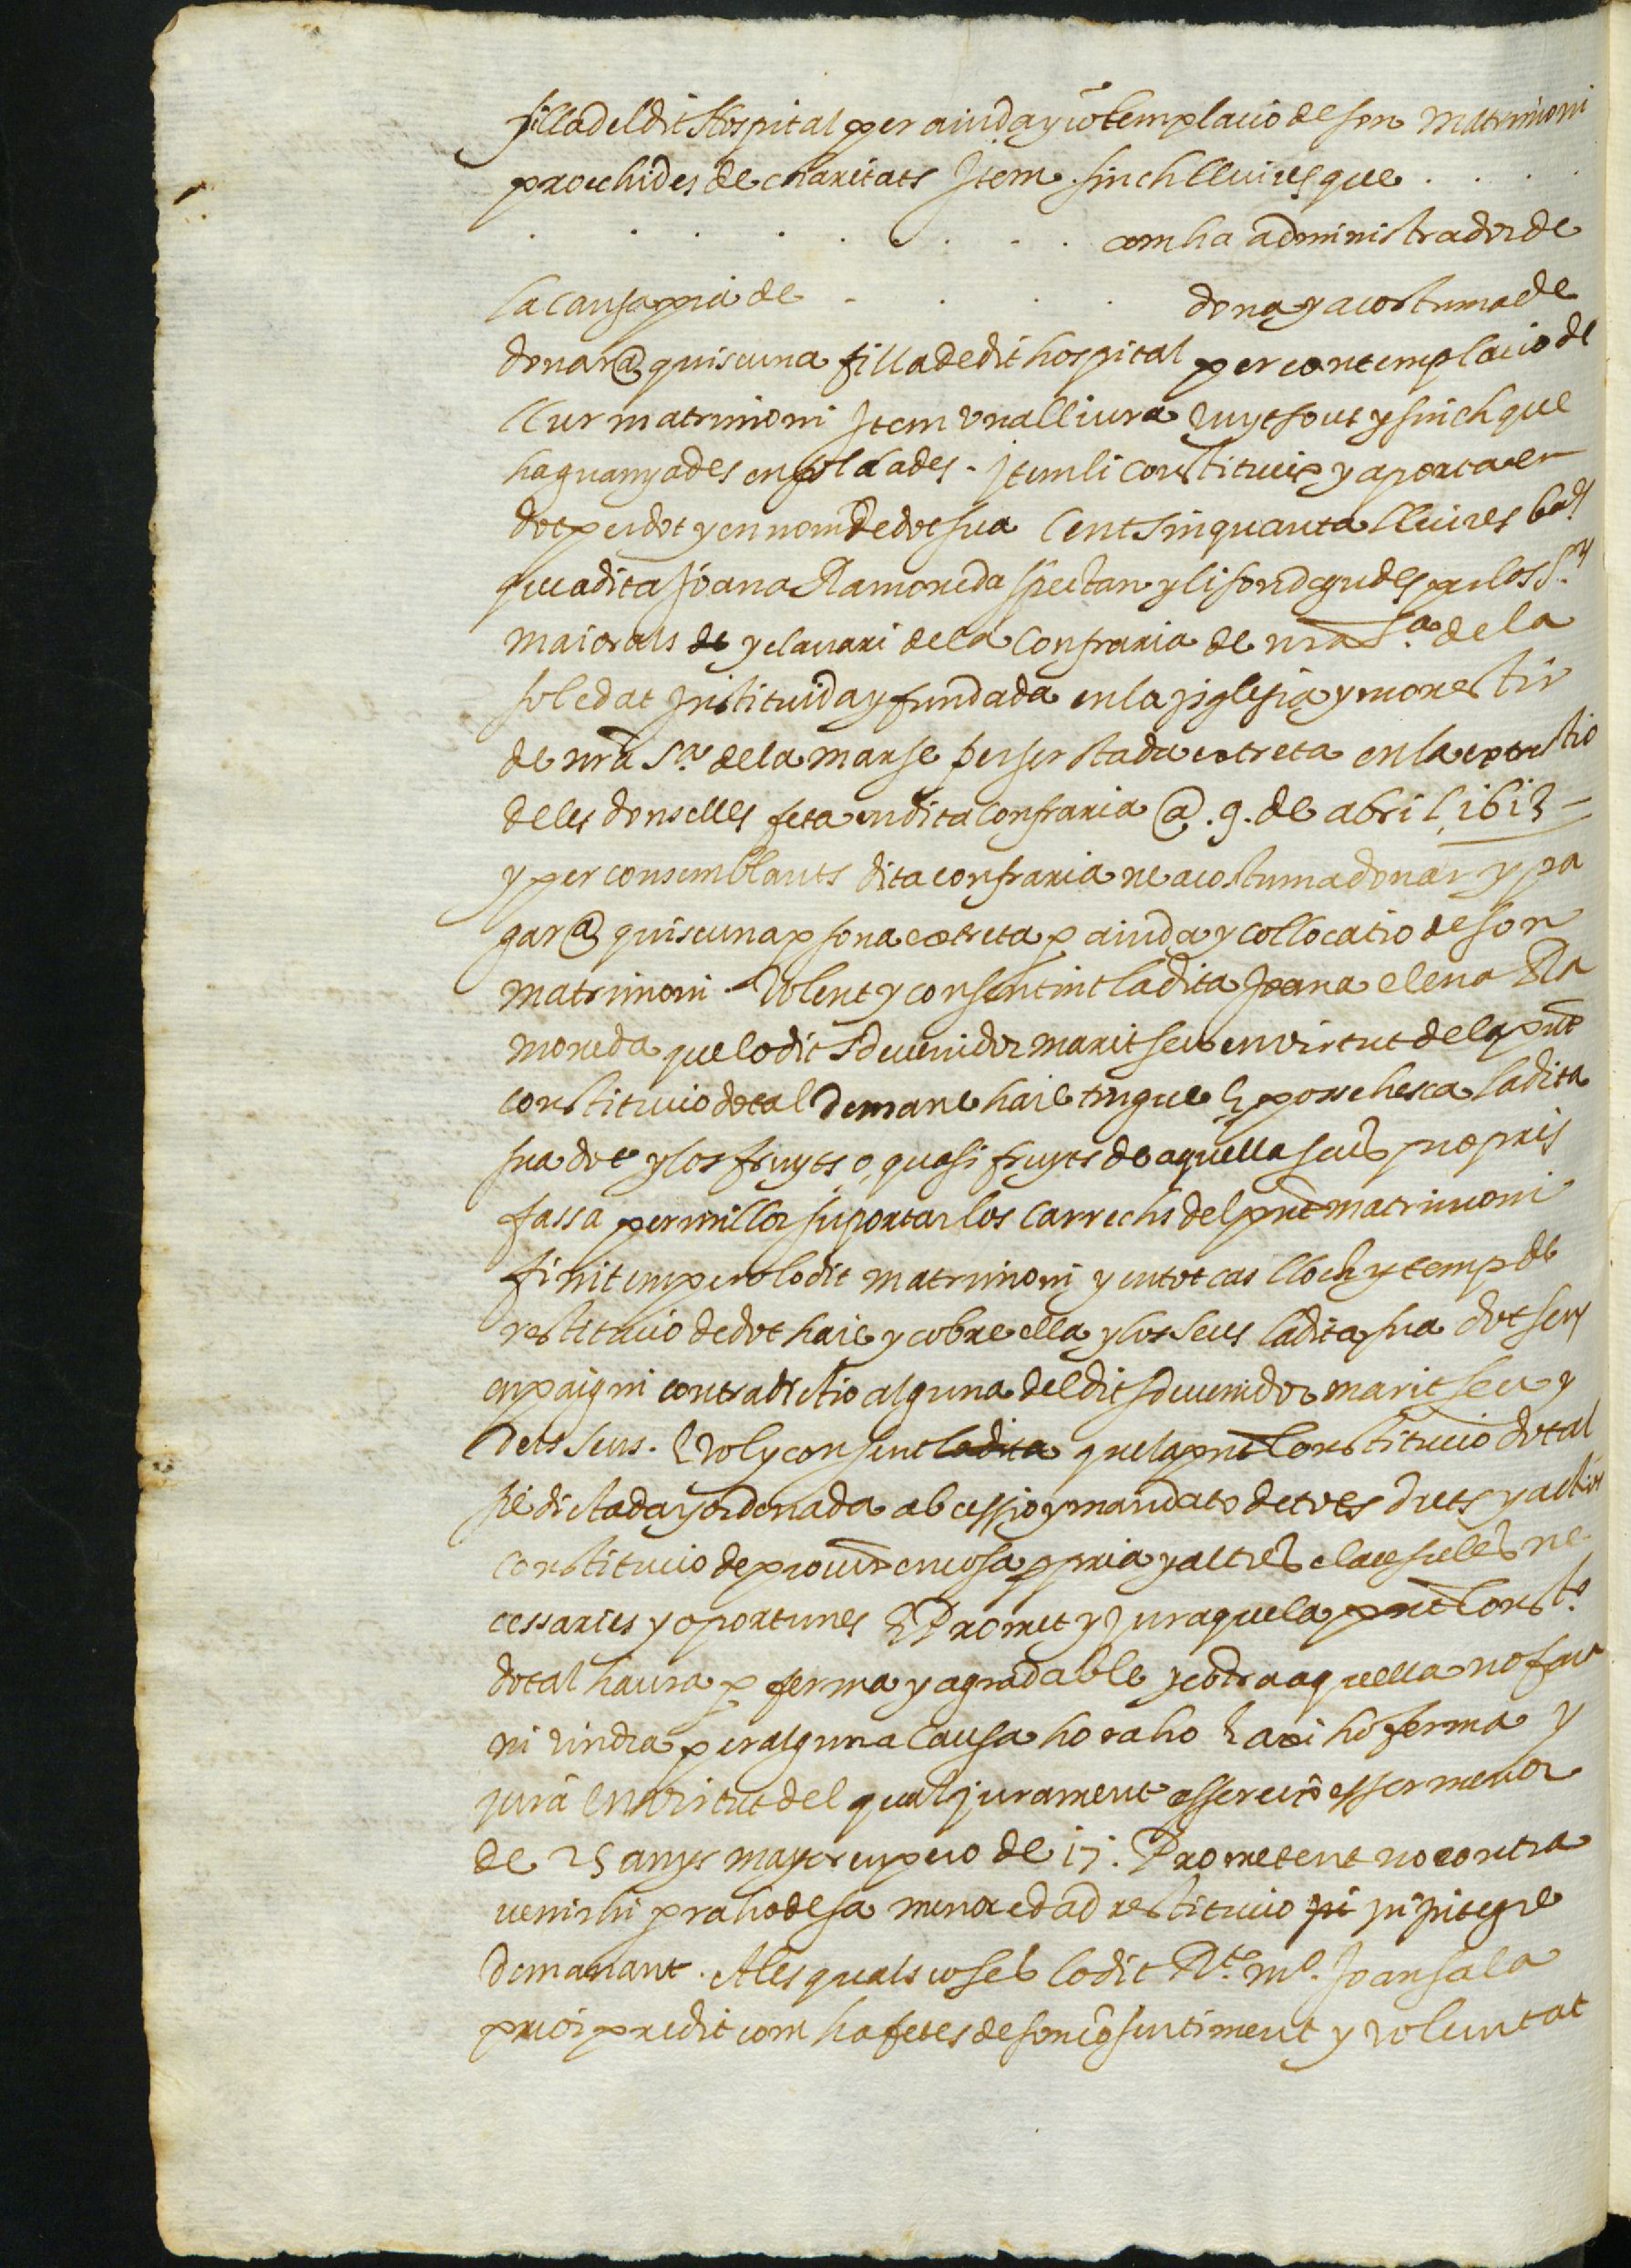 filla del dit Hospital per aiuda y cōtemplacio de son Matrimoni
procehides de charitats Item sinch lliures que . . . .
. . . . . . . . . . com ha administrador de
la causa pia de . . . . . dona y acostuma de
donar @ quiscuna filla de dit hospital per contemplacio de
llur matrimoni Item vna lliura vuyt sout y sinch que
ha guanyades en soldades . Item li constitueix y aporta en
dot per dot y en nom de dot sua Cent sinquanta lliures bas
que a dita Joana Ramoneda spectan y li son degudes per los Srs
maiorals de y clauari de la Confraria de nra Sa. de la
soledat Instituida y fundada en la Iiglesia y monestir
de nra Sa. de la marse per ser stada extreta en la extrectio
de les donselles feta en dita Confraria @ .9. de abril 1613 =
y per consemblants dita confraria ne acostuma donar y pa
gar @ quiscuna psona extreta p aiuda y collocatio de son
matrimoni Volent y consentint la dita Joana elena Ra
moneda que lo dit sdeuenidor marit seu en virtut de la pnt
constitucio dotal Deman e haie tingue E possehesca la dita
sua dot y los fruyts o quasi fruyts de aquella seus propris
fassa per millor suportar los Carrechs del pnt matrimoni
finit empero lo dit matrimoni y en tot cas lloch y temps de
restitucio de dot haie y cobre ella y los seus la dita sua dot sens
enpaig ni contradictio alguna del dit sdeuenidor marit seu y
dels seus . E vol y consent la dita que la pnt Constitucio dotal
sie dictada y ordenada ab cessio y mandato de tots drets y actions
constitucio de procur en cosa ppria y altres clausules ne
cessaries y oportunes E Promet y jura que la pnt Constō
dotal haura p ferma y agradable y cōtra aquella no fara
ni vindra per alguna Causa ho raho E axi hō ferma y
jura En virtut del qual jurament essereix esser menor
de 25 anys mayor empero de 17 . Prometent no contra
venir hi p raho de sa menor edad restitucio in in integre
demanant . A les quals coses lo dit Rt. mo. Joan sala
prior predit com ha fetes de son cōsentiment y voluntat